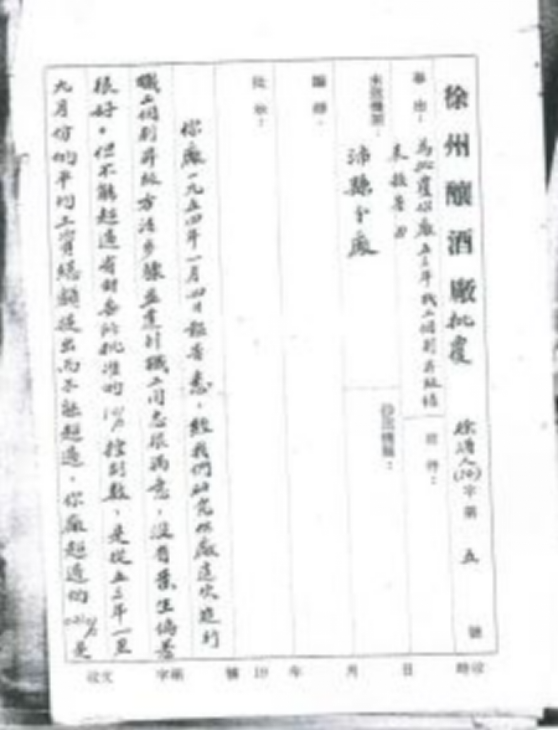 徐州釀酒廠批覆 徐酒人(54)字第 五 號
事由：為批覆你廠五三年職工個別升級結
束報告由
附件：
來送機關：
沛縣分廠
份送機關：
編
批
你廠一九五四年一月四日報告悉，經我們研究你廠這次進行
職工個別升級方法步驟並達到職工同志很滿意，沒有產生偏差
很好，但不能超過省財委所批准的 控制數，是從五三年一至
九月份的平均工資總額提出而不能超過，你廠超過的 是
收文 字 號 19 年 月 日 時收